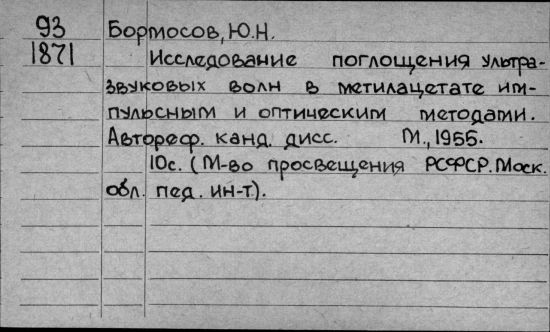 93 Бормосов, Ю.Н.
1871 Исследование поглощения ультра-
звуковых волн в метилацетате им-
пульсным и оптическим методами.
Автореф. канд. дисс. М., 1955.
10с. (М-во просвещения РСФСР. Моск.
обл. пед. ин-т).